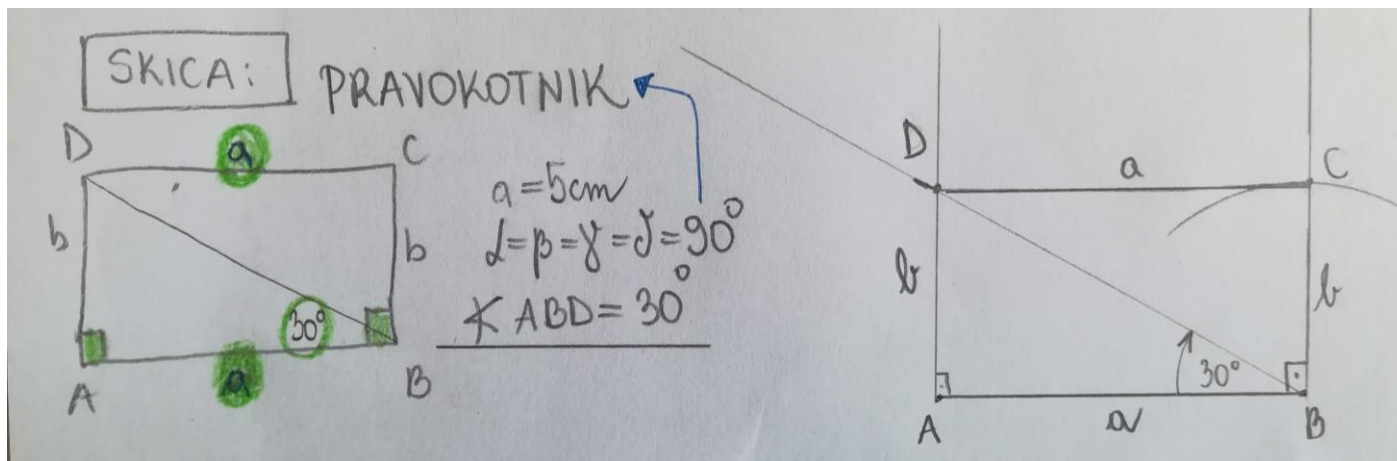 SKICA:
PRAVOKOTNIK
D
a
C
b
b
30°
A
a
B
a=5cm
α=β=γ=δ=90°
∢ ABD=30°
D
a
C
b
b
30°
A
a
B